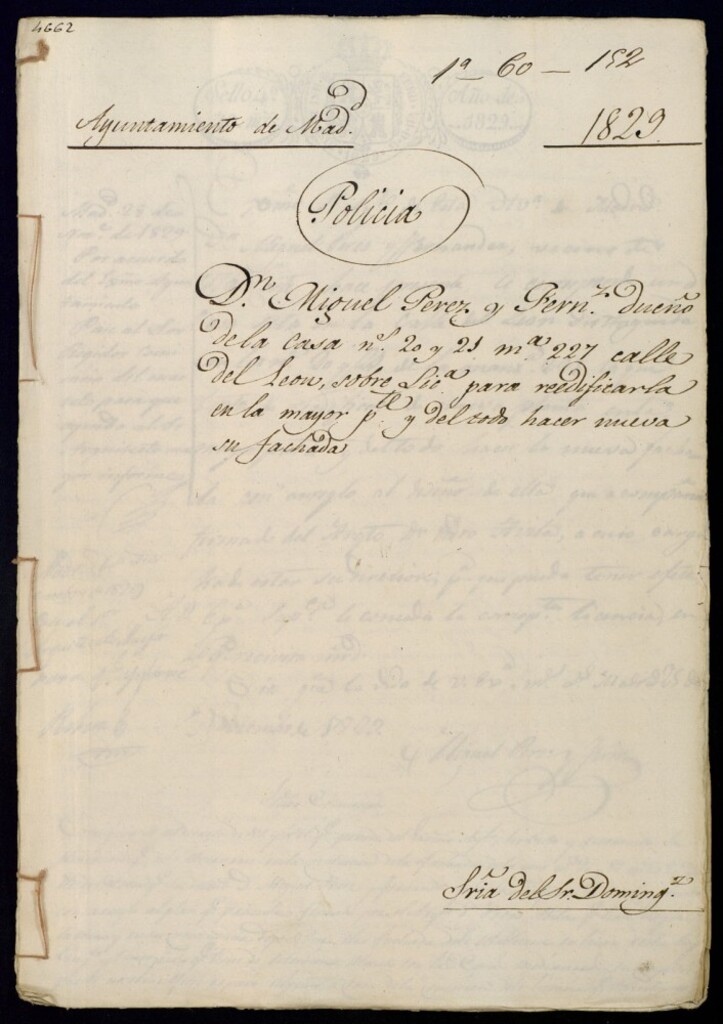 4662
1ª - 60 - 152
Ayuntamiento de Madd.
1829
Policia
Dn. Miguel Perez y Fernz. dueño
de la casa ns. 20 y 21 mª 227 calle
del Leon, sobre Licª para reedificarla
en la mayor pte y del todo hacer nueva
su fachada
Sria del Sr. Domingz.